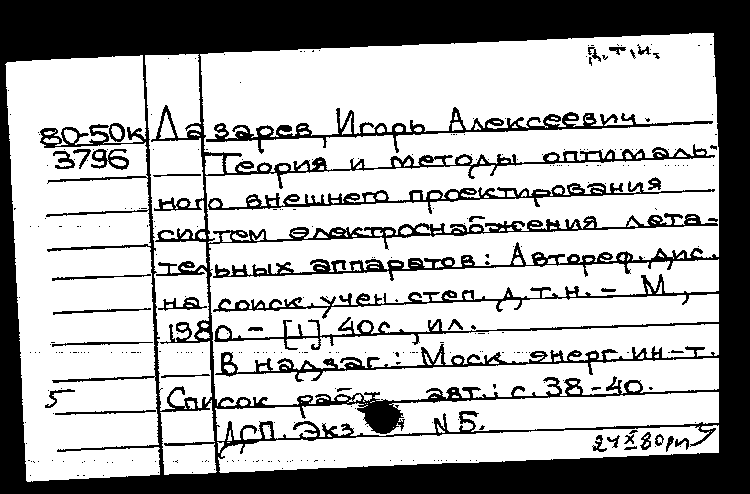 д.т.н.
80-50к Лазарев, Игорь Алексеевич.
3796 Теория и методы оптималь-
ного внешнего проектирования
систем электроснабжения лета-
тельных аппаратов: Автореф. дис.
на соиск. учен. степ. д.т.н. - М.,
1980. - [1], 40с., ил.
В надзаг.: Моск. энерг. ин-т.
5 Список работ авт.: с. 38-40.
ДСП. Экз. N5.
24 X 80